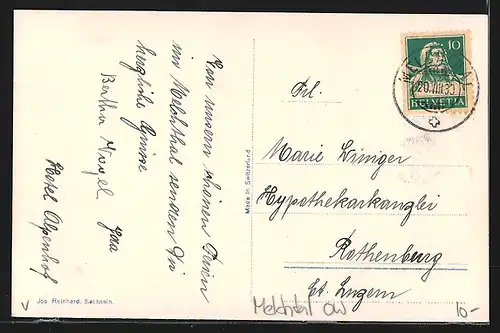 Von unsern schönen Ferien
im Melchthal senden Dir
herzliche Grüsse
Bertha
Hotel Alpenhof
Jos. Reinhard, Sachseln.
Made in Switzerland
10
HELVETIA
20.VIII.30
Frl.
Marie Winiger
Hypothekarkanzlei
Rothenburg
Ct. Luzern
Melchtal OW
10-